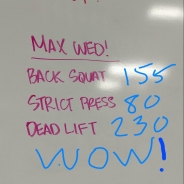 MAX WED!
BACK SQUAT 155
STRICT PRESS 80
DEADLIFT 230
WOW!